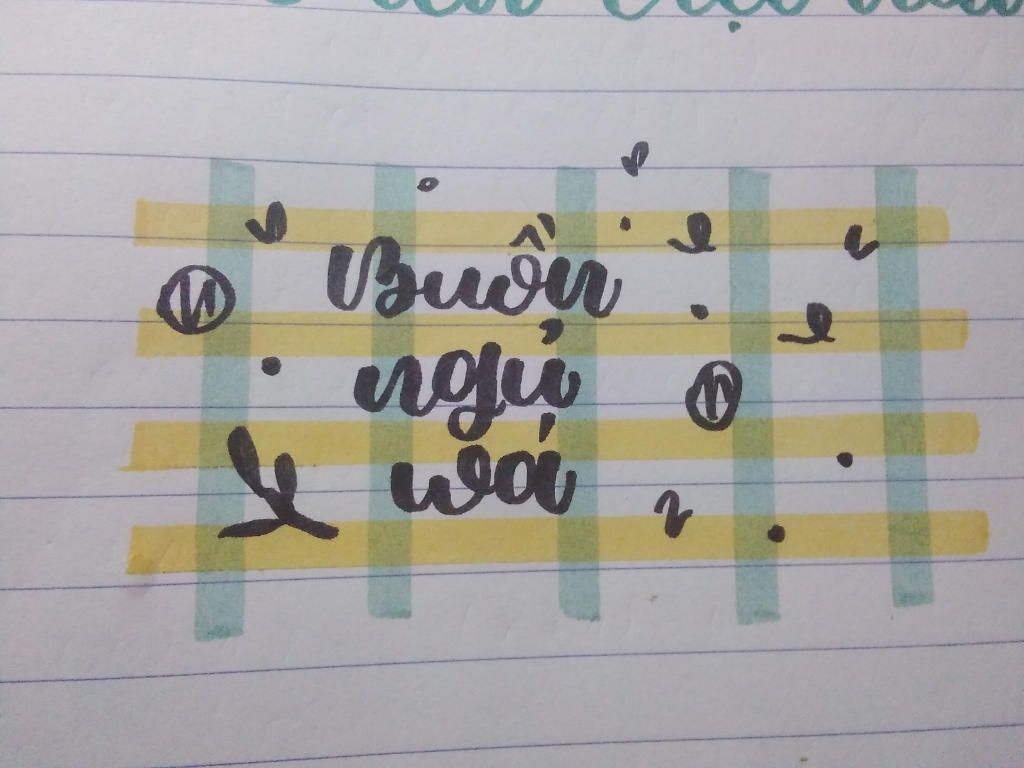 Buồn
ngủ
wá